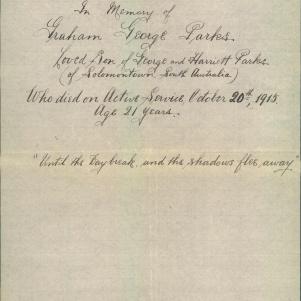 In Memory of
Graham George Parks.
Loved Son of George and Harriett Parks.
(of Solomontown, South Australia)
Who died on Active Service, October 20th, 1915.
Age 21 years.
"Until the Day break, and the shadows flee away"